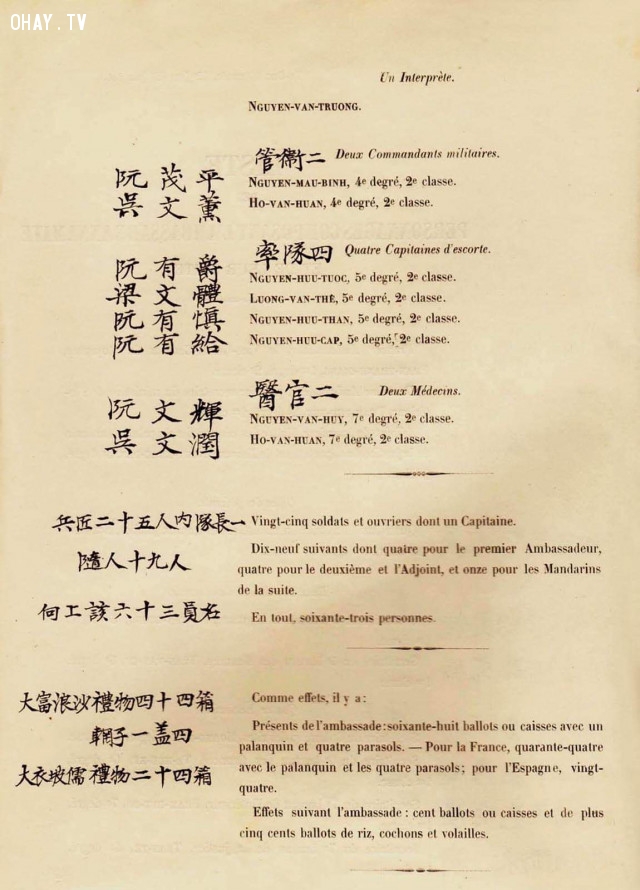 OHAY.TV
Un Interprète.
NGUYEN-VAN-TRUONG.
管衛二 Deux Commandants militaires.
阮茂平 NGUYEN-MAU-BINH, 4e degré, 2e classe.
吳文薰 HO-VAN-HUAN, 4e degré, 2e classe.
率隊四 Quatre Capitaines d'escorte.
阮有爵 NGUYEN-HUU-TUOC, 5e degré, 2e classe.
梁文體 LUONG-VAN-THÊ, 5e degré, 2e classe.
阮有慎 NGUYEN-HUU-THAN, 5e degré, 2e classe.
阮有給 NGUYEN-HUU-CAP, 5e degré, 2e classe.
醫官二 Deux Médecins.
阮文輝 NGUYEN-VAN-HUY, 7e degré, 2e classe.
吳文潤 HO-VAN-HUAN, 7e degré, 2e classe.
兵匠二十五人内隊長一 Vingt-cinq soldats et ouvriers dont un Capitaine.
隨人十九人 Dix-neuf suivants dont quatre pour le premier Ambassadeur,
quatre pour le deuxième et l'Adjoint, et onze pour les Mandarins
de la suite.
何工該六十三員名 En tout, soixante-trois personnes.
大富浪沙禮物四十四箱 Comme effets, il y a:
輞子一盖四 Présents de l'ambassade: soixante-huit ballots ou caisses avec un
palanquin et quatre parasols. — Pour la France, quarante-quatre
大衣坡儒禮物二十四箱 avec le palanquin et les quatre parasols; pour l'Espagne, vingt-
quatre.
Effets suivant l'ambassade: cent ballots ou caisses et de plus
cinq cents ballots de riz, cochons et volailles.